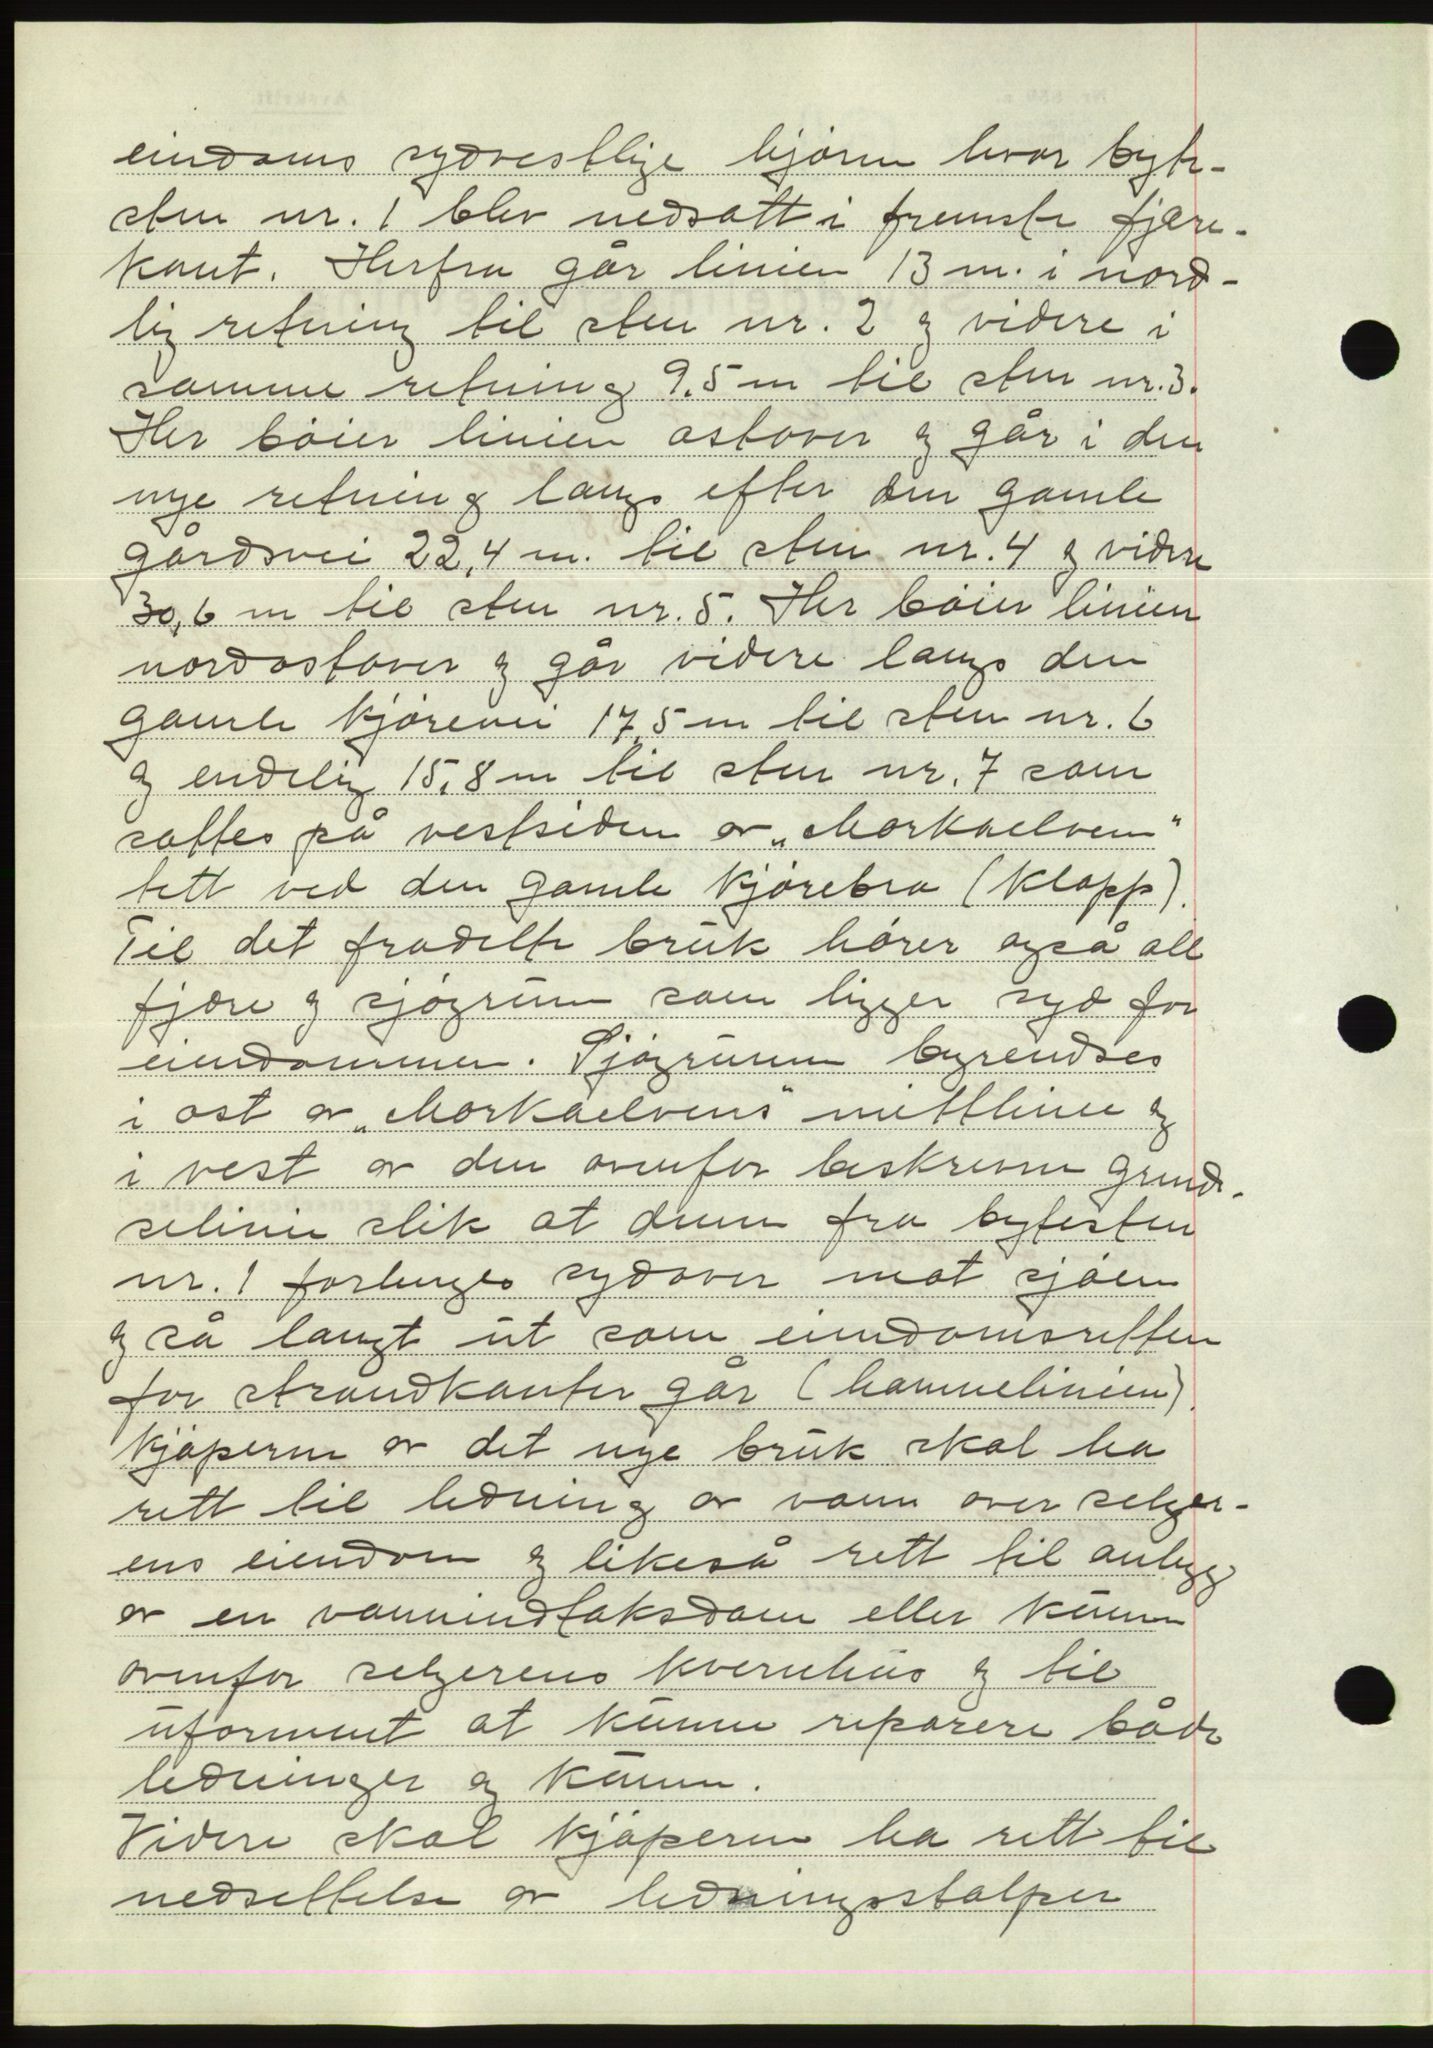 eiendoms sydvestlige hjörne hvor byte-
sten nr. 1 blev nedsatt i fremste fjære-
kant. Herfra går linien 13 m. i nord-
lig retning til sten nr. 2 og videre i
samme retning 9,5 m til sten nr. 3.
Her böier linien østover og går i den
nye retning langs efter den gamle
gårdsvei 22,4 m. til sten nr. 4 og videre
30,6 m til sten nr. 5. Her böier linien
nordøstover og går videre langs den
gamle kjörevei 17,5 m til sten nr. 6
og endelig 15,8 m til sten nr. 7 som
sattes på vestsiden av „Morkaelven"
tett ved den gamle kjörebro (klopp).
Til det fradelte bruk hörer også all
fjære og sjögrunn som ligger syd for
eiendommen. Sjögrunn begrendses
i øst av „Morkaelvens" mittlinie og
i vest av den ovenfor beskrevne grend-
selinie slik at denne fra bytesten
nr. 1 forlenges sydover mot sjöen
og så langt ut som eiendomsretten
for strandkanter går (hamnelinien).
Kjöperen av det nye bruk skal ha
rett til ledning av vann over selger-
ens eiendom og likeså rett til anlegg
av en vannindtaksdam eller kumme
ovenfor selgerens kvernhus og til
uforment at kunne reparere både
ledninger og kumm.
Videre skal kjöperen ha rett til
nedsettelse av ledningsstolper